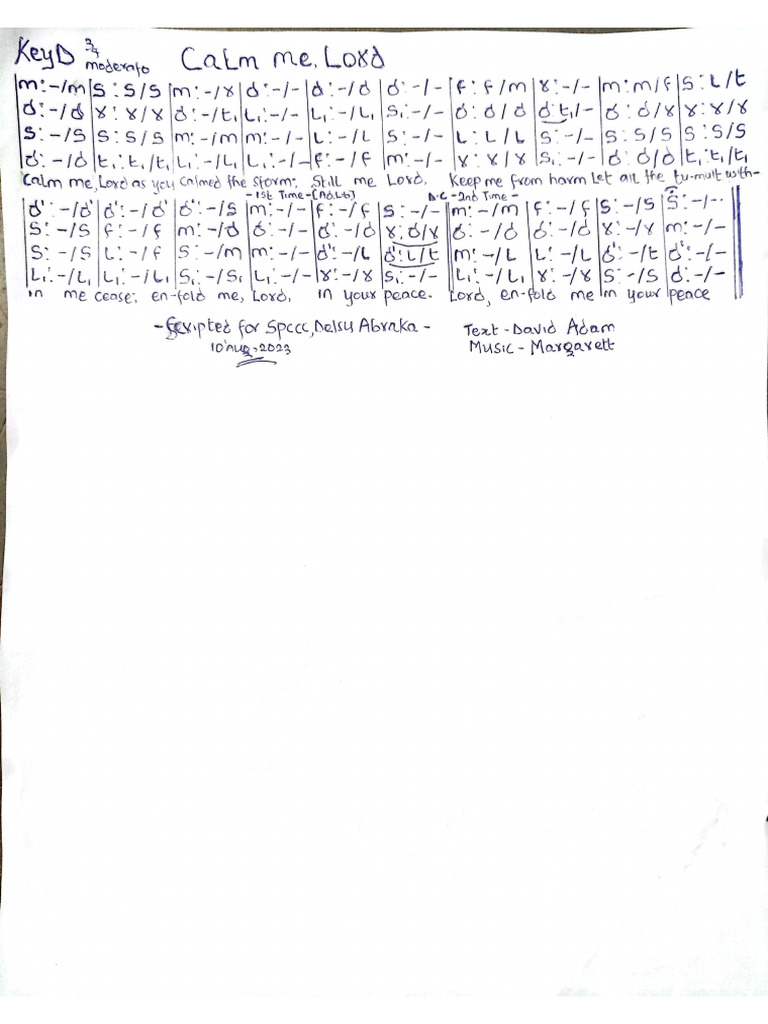 Key D 3/4 moderato Calm me, Lord
|m:-/m|s:s/s|m:-/r|d:-/-|d:-/d|d:-/-|f:f/m|r:-/-|m:m/f|s:l/t
d:-/d|r:r/r|d:-/t₁|l₁:-/-|l₁:-/l₁|s₁:-/-|d:d/d|d:t₁/-|d:d/r|r:r/r
s:-/s|s:s/s|m:-/m|m:-/-|l:-/l|s:-/-|l:l/l|s:-/-|s:s/s|s:s/s
d:-/d|t₁:t₁/t₁|l₁:-/l₁|l₁:-/-|f:-/f|m:-/-|r:r/r|s₁:-/-|d:d/d|t₁:t₁/t₁
Calm me, Lord as you calmed the storm; Still me Lord, Keep me from harm Let all the tu-mult with-
-1st Time-[Ad.Lib] D.C-2nd Time-
|d':-/d'|d':-/d'|d':-/s|m:-/-|f:-/f|s:-/-|m:-/m|f:-/f|s:-/s|s:-/--
s:-/s|f:-/f|m:-/d|d:-/-|d:-/d|r:d/r|d:-/d|d:-/d|r:-/r|m:-/-
s:-/s|l:-/f|s:-/m|m:-/-|d':-/l|d':l/t|m:-/l|l:-/l|d':-/t|d':-/-
l₁:-/l₁|l₁:-/l₁|s₁:-/s₁|l₁:-/-|r:-/r|s₁:-/-|l₁:-/l₁|r:-/r|s:-/s|d:-/-
in me cease; en-fold me, Lord, in your peace. Lord, en-fold me in your peace
-Scripted for SPCCC, Delsu Abraka - Text - David Adam
10 Aug, 2023 Music - Margarett